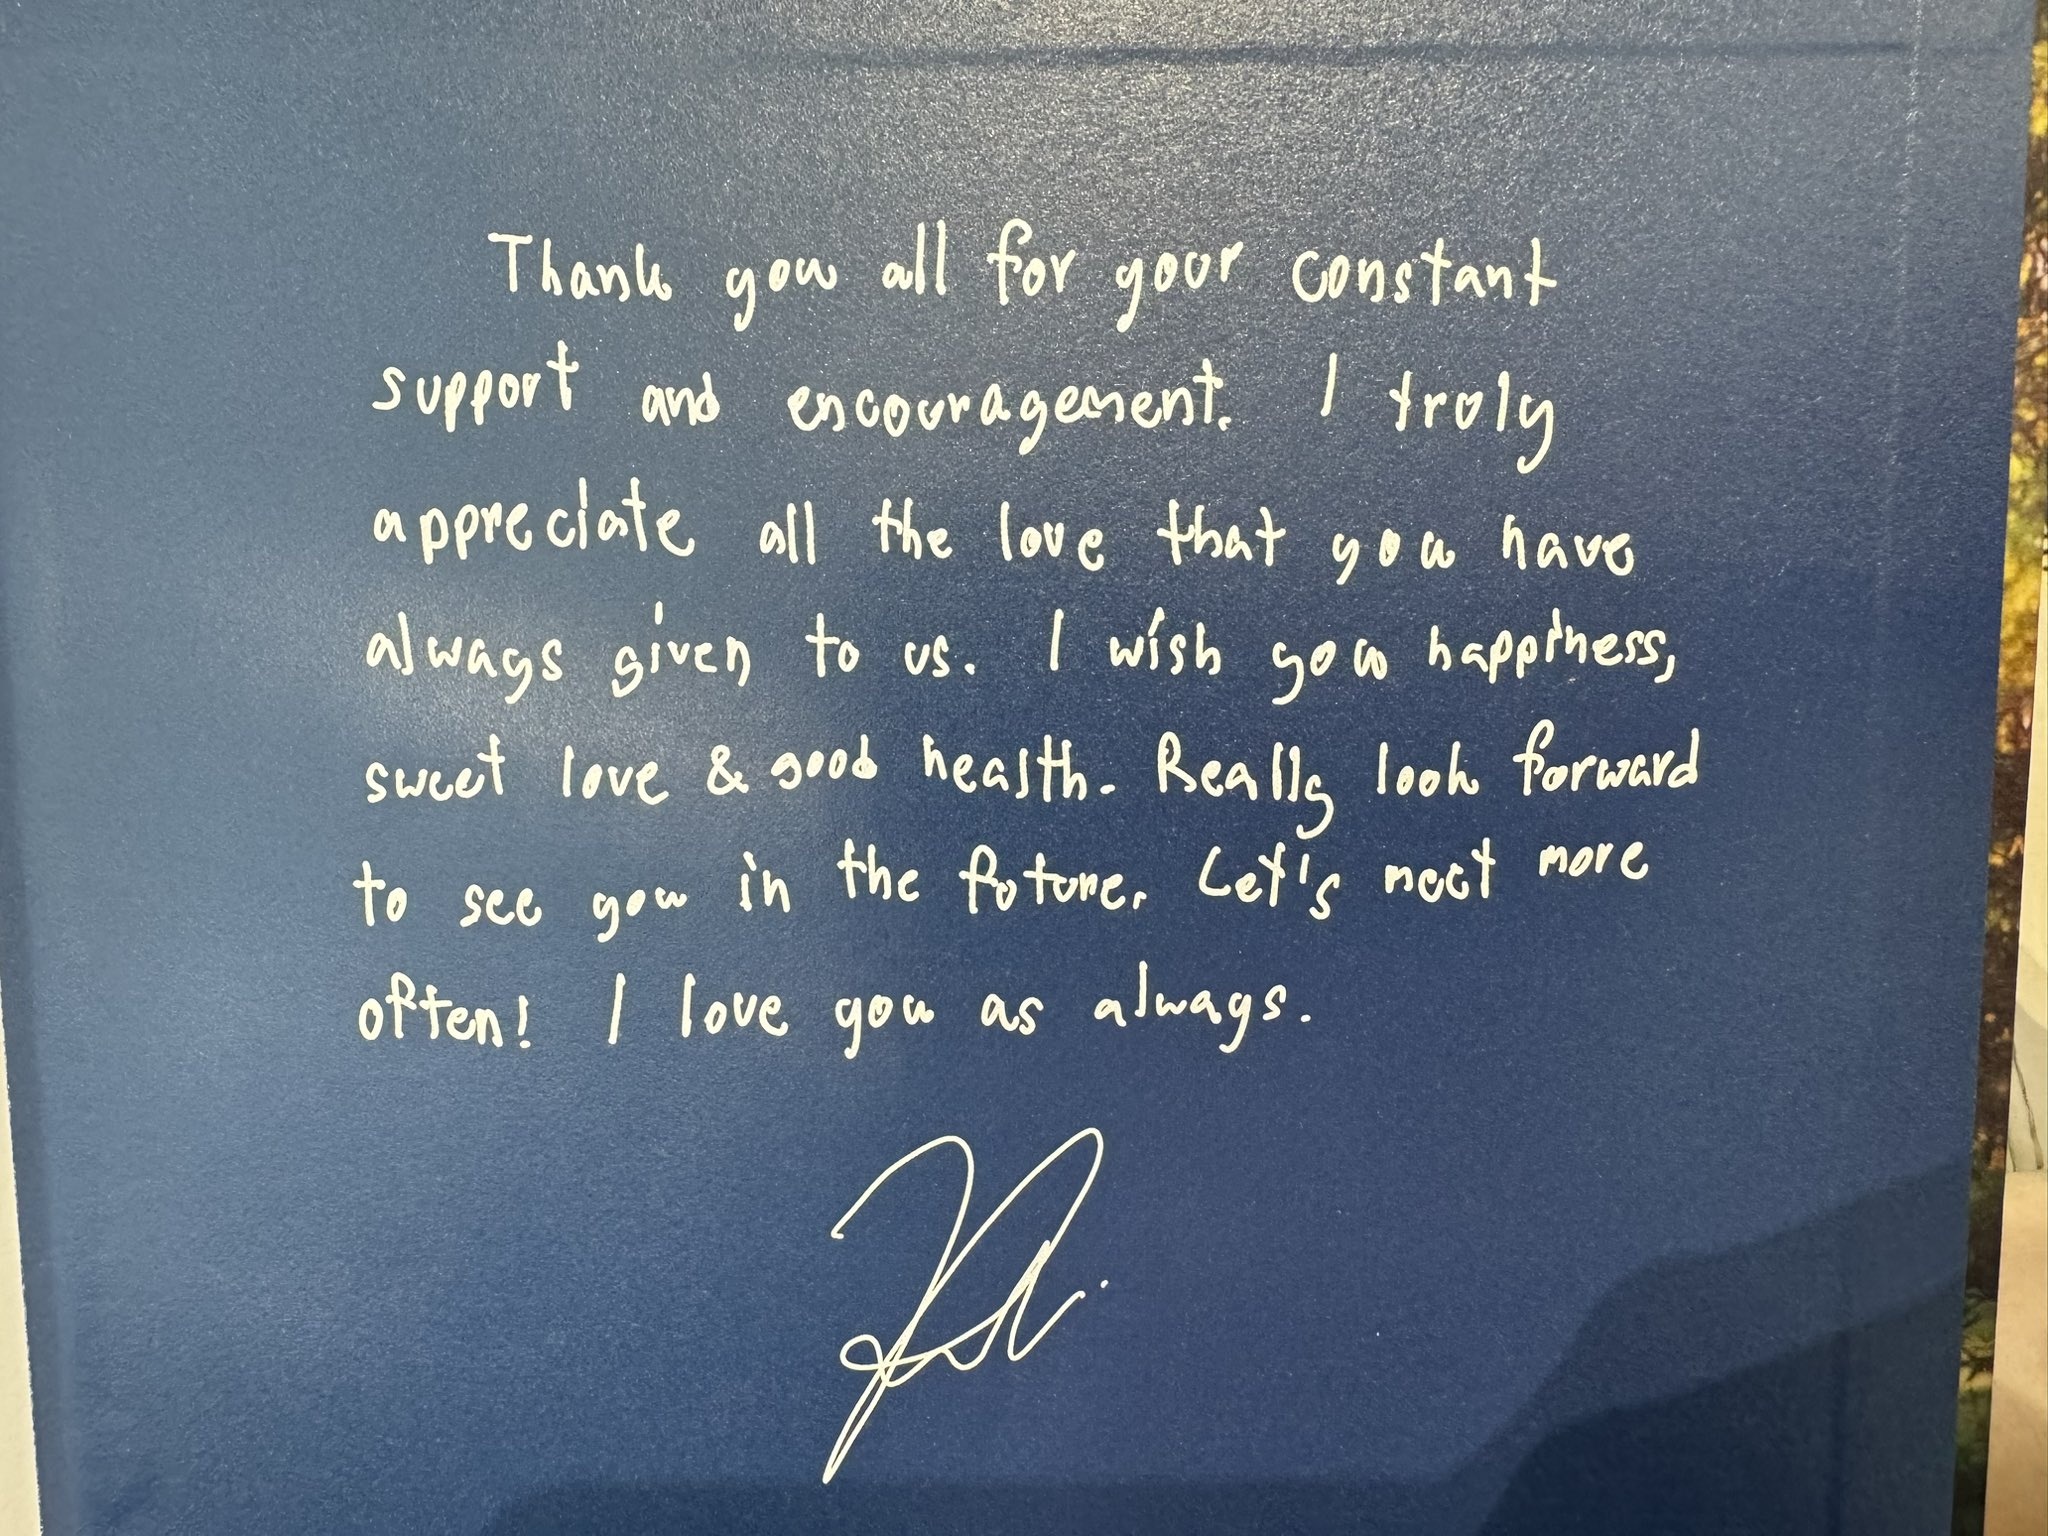 Thank you all for your constant
support and encouragement. I truly
appreciate all the love that you have
always given to us. I wish you happiness,
sweet love & good health. Really look forward
to see you in the future. Let's meet more
often! I love you as always.